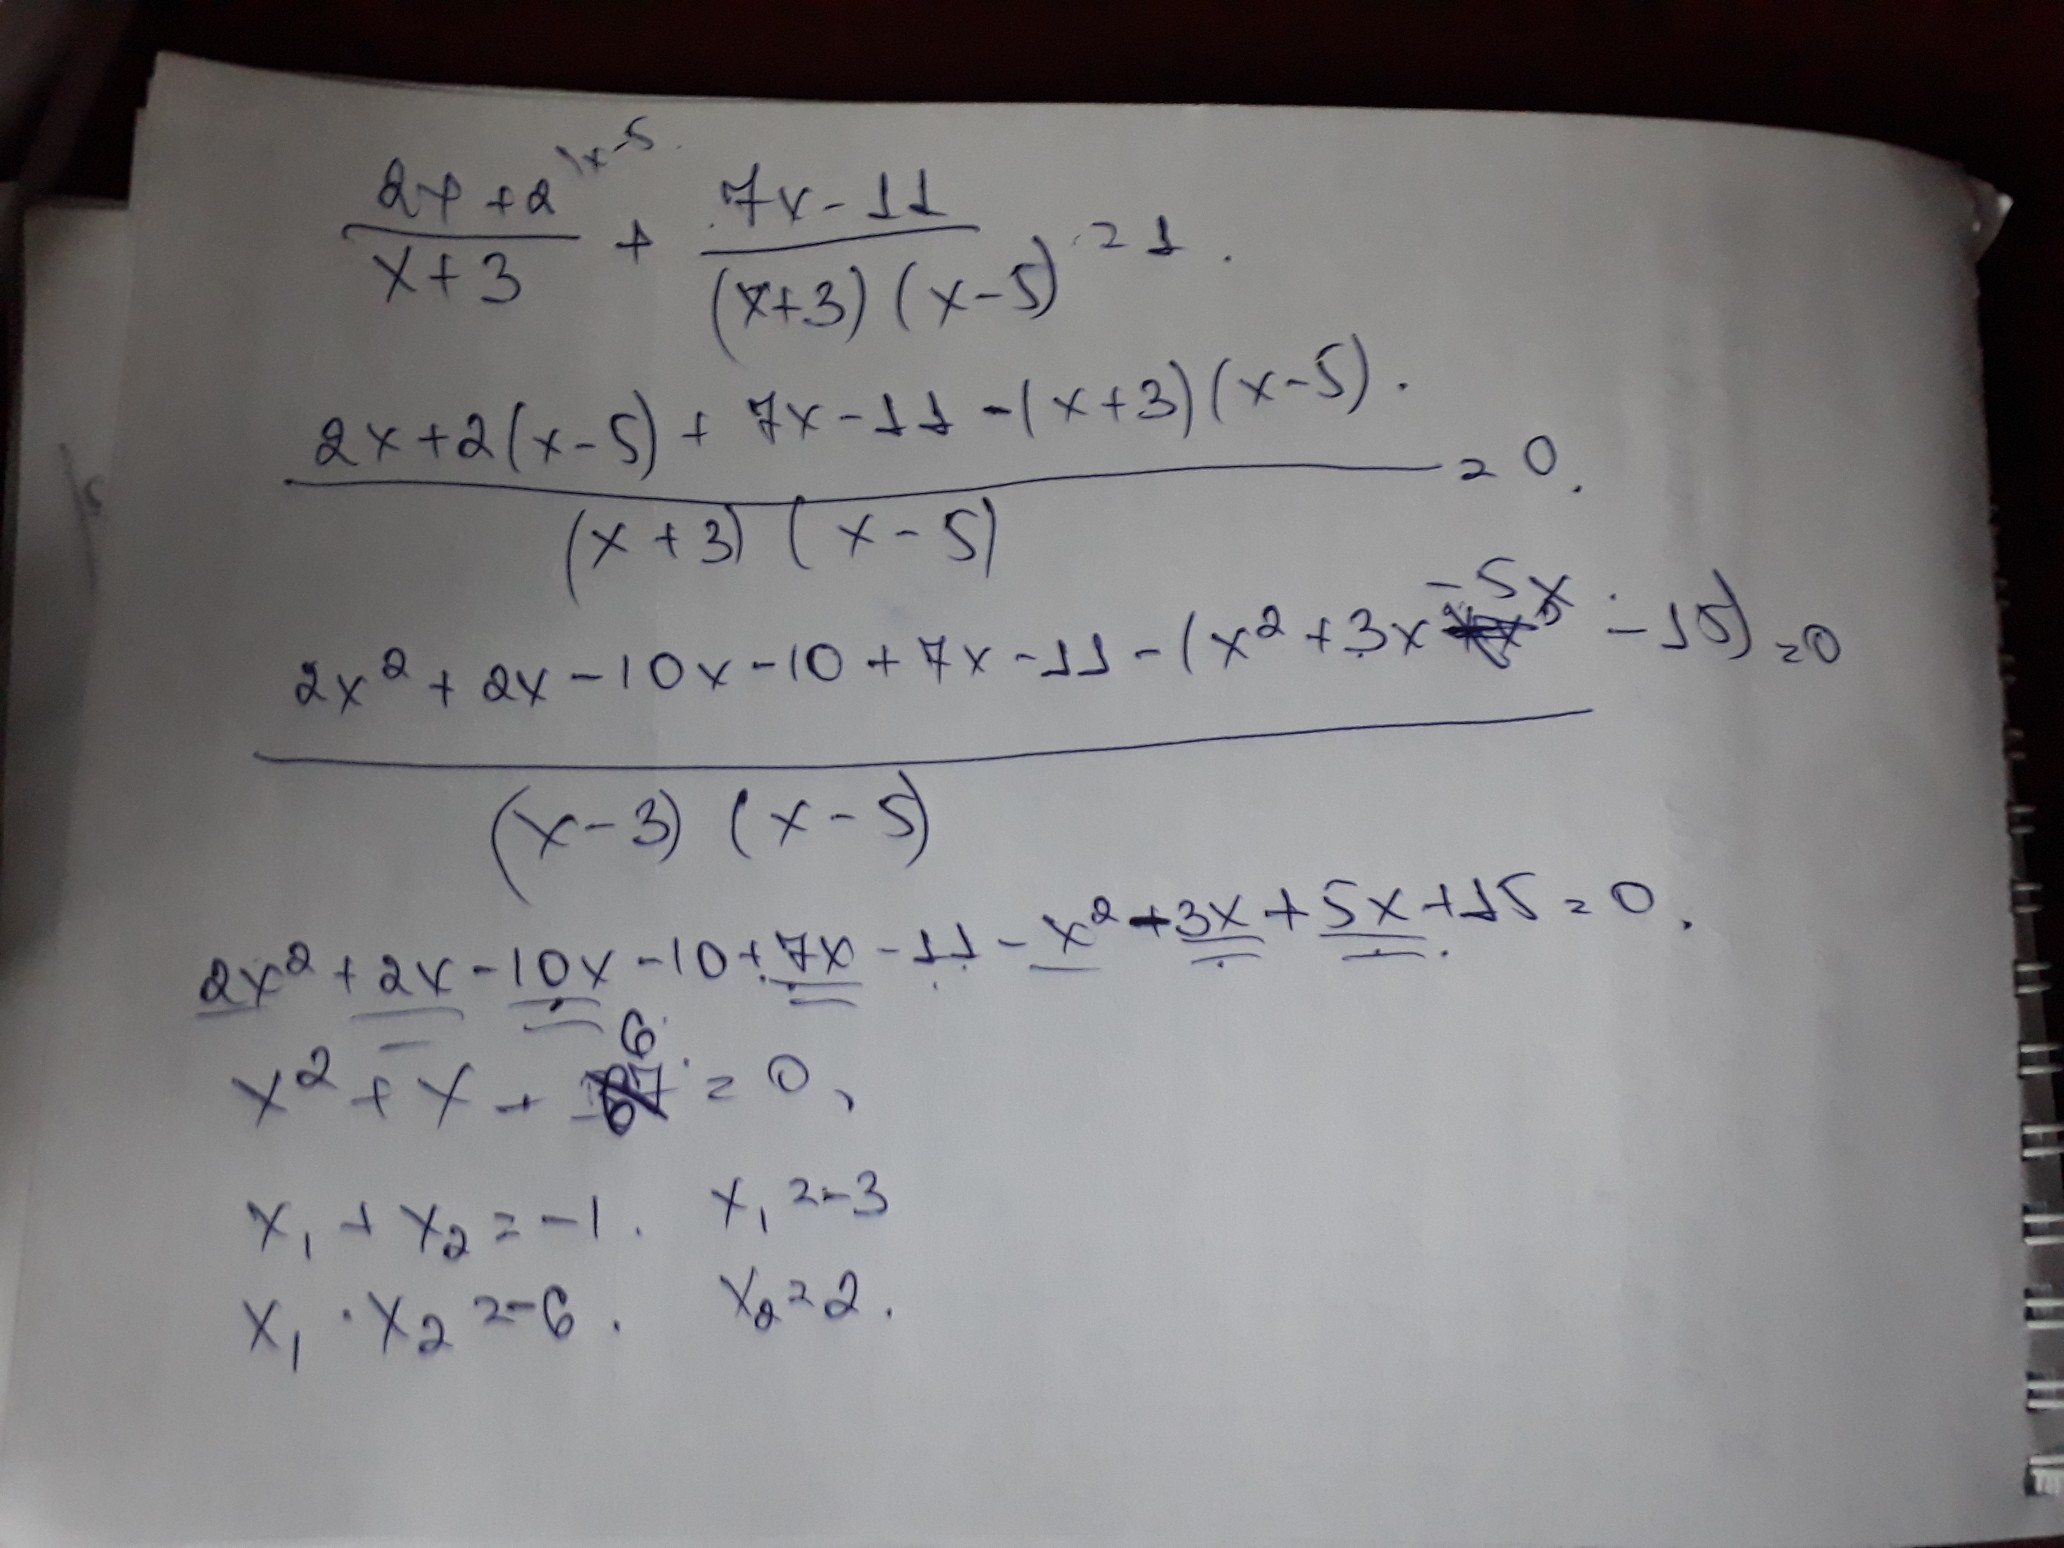 2x+2 \x-5. / x+3 + 7x-11 / (x+3)(x-5) = 1.
2x+2(x-5) + 7x-11 -(x+3)(x-5). / (x+3)(x-5) = 0.
2x² + 2x - 10x - 10 + 7x - 11 - (x² + 3x - 5x - 15) = 0 / (x-3)(x-5)
2x² + 2x - 10x - 10 + 7x - 11 - x² - 3x + 5x + 15 = 0.
x² + x - 6 = 0,
x₁ + x₂ = -1. x₁ = -3
x₁ · x₂ = -6. x₂ = 2.